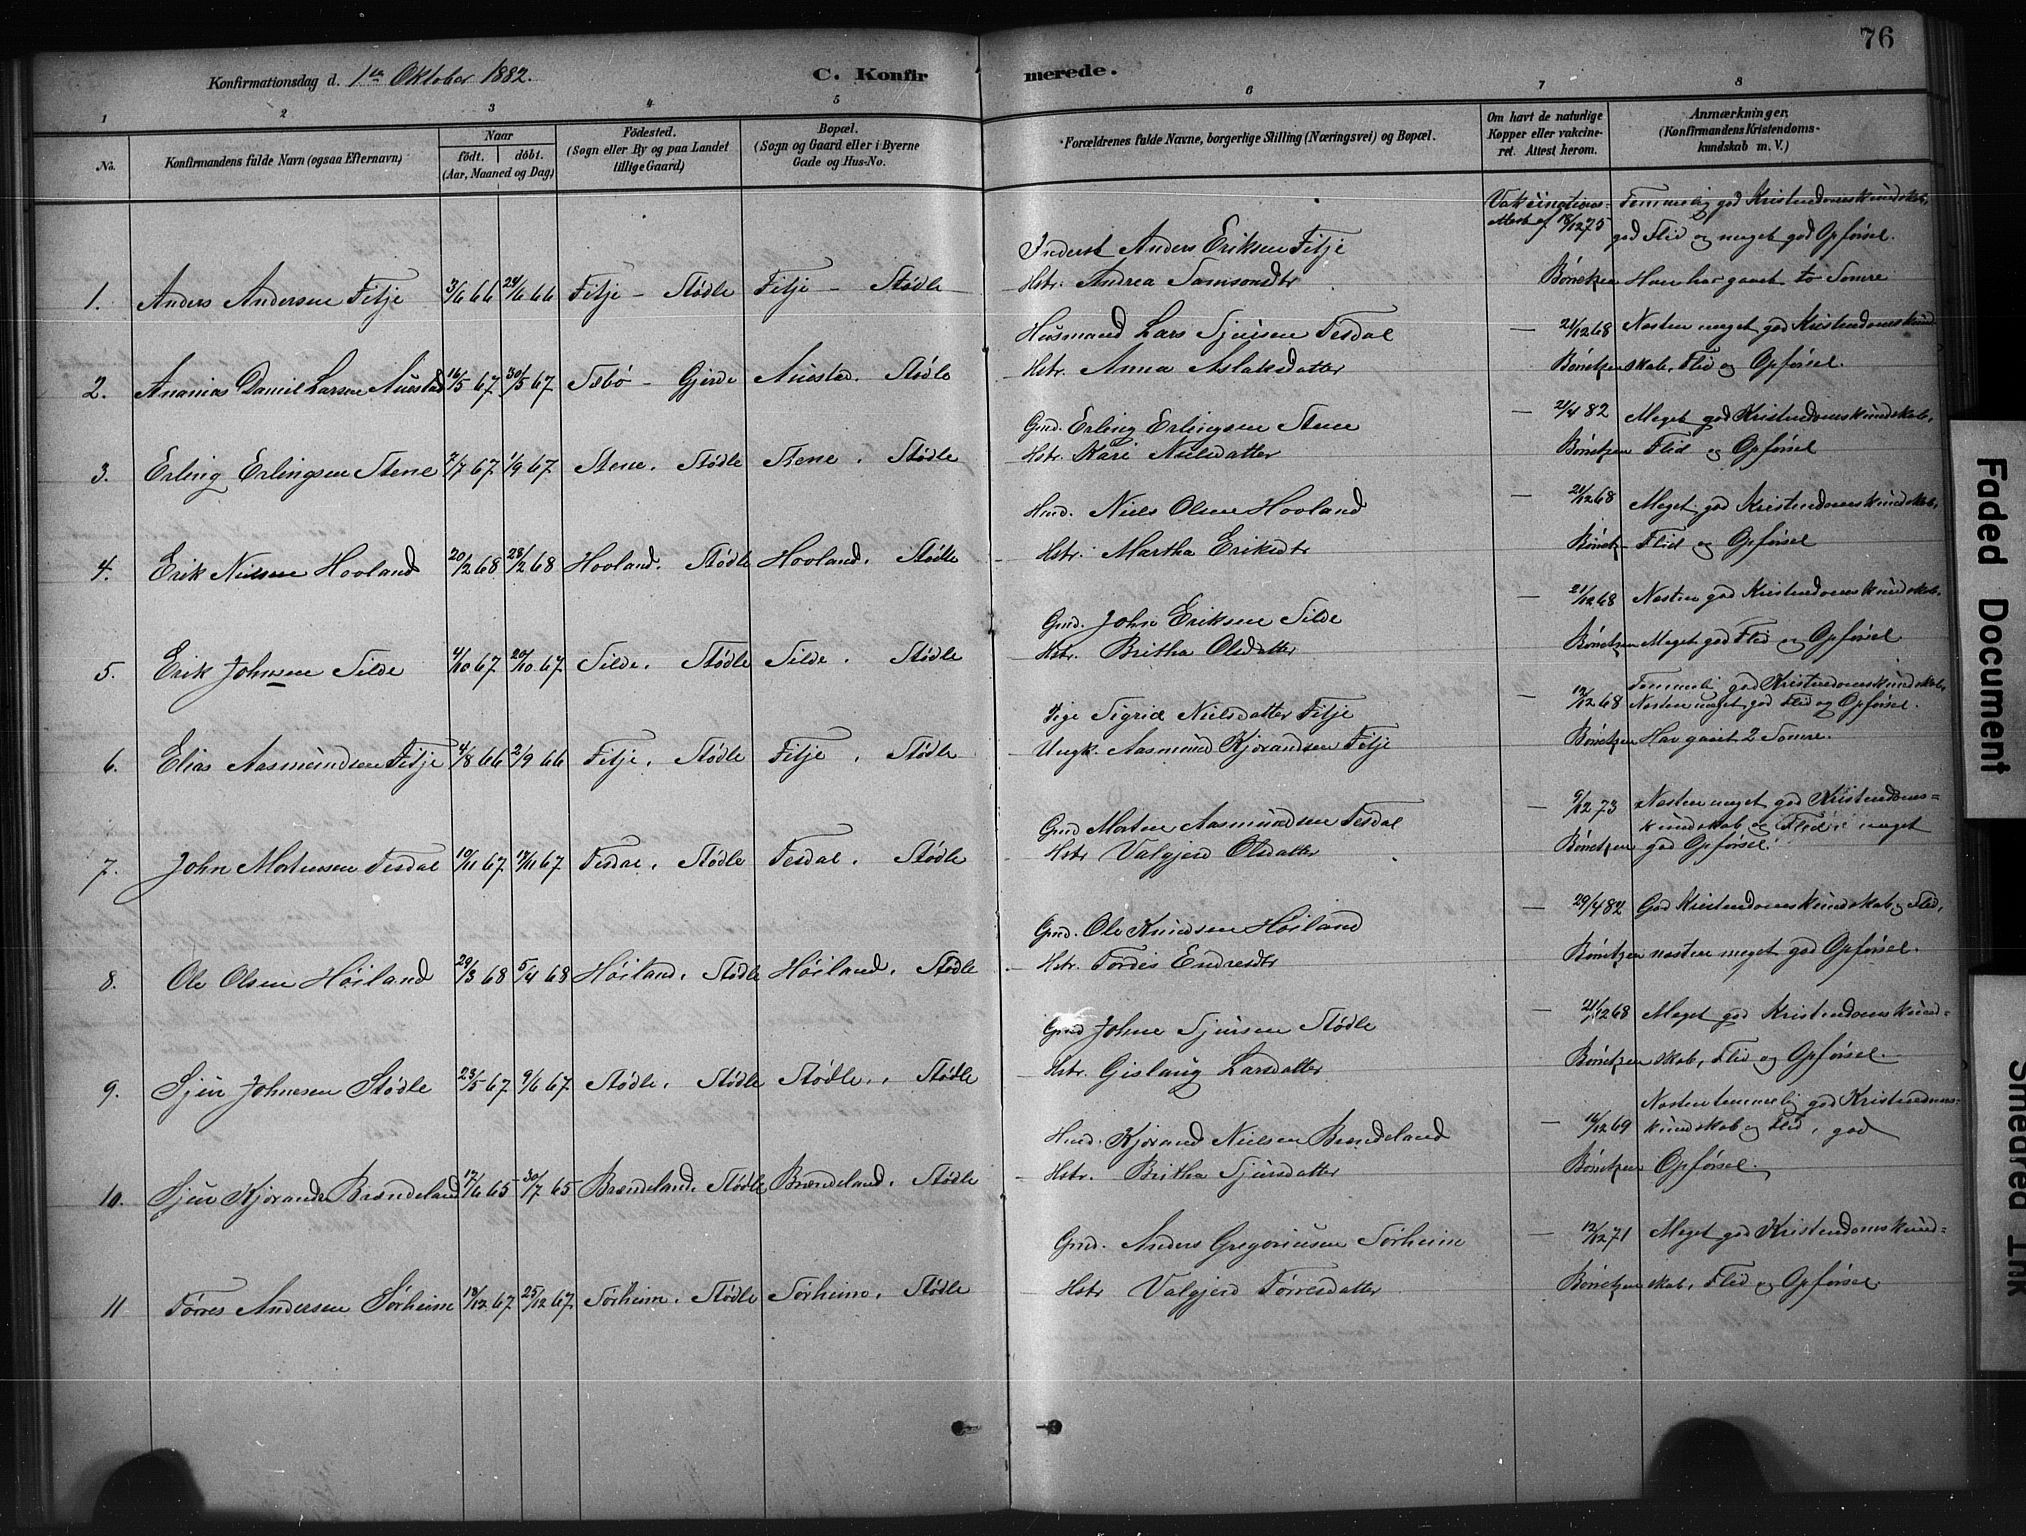 76
Konfirmationsdag d. 1ste Oktober 1882.
C. Konfirmerede.
1 2 3 4 5 6 7 8
No.
Konfirmandens fulde Navn (ogsaa Efternavn)
Naar
födt. döbt.
(Aar, Maaned og Dag)
Födested.
(Sogn eller By og paa Landet
tillige Gaard)
Bopæl.
(Sogn og Gaard eller i Byerne
Gade og Hus-No.
Forældrenes fulde Navne, borgerlige Stilling (Næringsvei) og Bopæl.
Om havt de naturlige
Kopper eller vakcine-
ret. Attest herom.
Anmærkninger.
(Konfirmandens Kristendoms-
kundskab m. V.)
1. Anders Andersen Fitje 3/6 66 24/6 66 Fitje - Stødle Fitje - Stødle
Inderst Anders Eriksen Fitje
Hstr. Andrea Samsonsdtr
Vakcinations-
Attest af 18/12 75
Bønetzen
Temmelig god Kristendomskundskab,
god Flid og meget god Opførsel.
Han har gaaet to Somre
2. Ananias Daniel Larsen Austad 16/5 67 30/5 67 Sæbø - Gjerde Austad. Stødle
Husmand Lars Sjursen Tesdal
Hstr. Anna Aslaksdatter
— 21/12 68
Bønetzen
Næsten meget god Kristendomskund-
skab, Flid og Opførsel.
3. Erling Erlingsen Stene 7/7 67 1/9 67 Stene. Stødle Stene. Stødle
Gmd. Erling Erlingsen Stene
Hstr. Kari Nielsdatter
— 21/4 82
Bønetzen
Meget god Kristendomskundskab,
Flid og Opførsel
4. Erik Nielsen Hovland 20/2 68 23/2 68 Hovland. Stødle Hovland. Stødle
Hmd. Niels Olsen Hovland
Hstr. Martha Eriksdtr
— 21/12 68
Bønetzen
Meget god Kristendomskundskab,
Flid og Opførsel
5. Erik Johnsen Silde 4/10 67 20/10 67 Silde. Stødle Silde. Stødle
Gmd. John Eriksen Silde
Hstr. Britha Olsdatter
— 21/12 68
Bønetzen
Næsten god Kristendomskundskab,
Meget god Flid og Opførsel
6. Elias Aasmundsen Fitje 4/8 66 2/9 66 Fitje. Stødle Fitje. Stødle
Pige Sigrid Nielsdatter Fitje
Ungk. Aasmund Kjørandsen Fitje
— 12/12 68
Bønetzen
Temmelig god Kristendomskundskab,
Næsten meget god Flid og Opførsel.
Har gaaet 2 Somre.
7. John Mortensen Tesdal 10/11 67 17/11 67 Tesdal. Stødle Tesdal. Stødle
Gmd Morten Aasmundsen Tesdal
Hstr Valgjerd Olsdatter
— 9/12 73
Bønetzen
Næsten meget god Kristendoms-
kundskab og Flid, meget
god Opførsel.
8. Ole Olsen Høiland 29/3 68 5/4 68 Høiland. Stødle Høiland. Stødle
Gmd. Ole Knudsen Høiland
Hstr. Tordis Endresdtr
— 29/4 82
Bønetzen
God Kristendomskundskab og Flid,
næsten meget god Opførsel.
9. Sjur Johnesen Stødle 23/5 67 9/6 67 Stødle. Stødle Stødle. Stødle
Gmd Johne Sjursen Stødle
Hstr. Gislaug Larsdatter
— 21/12 68
Bønetzen
Meget god Kristendomskund-
skab, Flid og Opførsel.
10. Sjur Kjørands. Brændeland 17/6 65 30/7 65 Brændeland. Stødle Brændeland. Stødle
Hmd. Kjørand Nielsen Brændeland
Hstr. Britha Sjursdatter
— 11/12 69
Bønetzen
Næsten temmelig god Kristendoms-
kundskab og Flid, god
Opførsel.
11 Tørres Andersen Sørheim 18/12 67 25/12 67 Sørheim. Stødle Sørheim. Stødle
Gmd. Anders Gregoriusen Sørheim
Hstr Valgjerd Tørresdatter
— 12/12 71
Bønetzen
Meget god Kristendomskund-
skab, Flid og Opførsel.
Faded Document
Smeared Ink